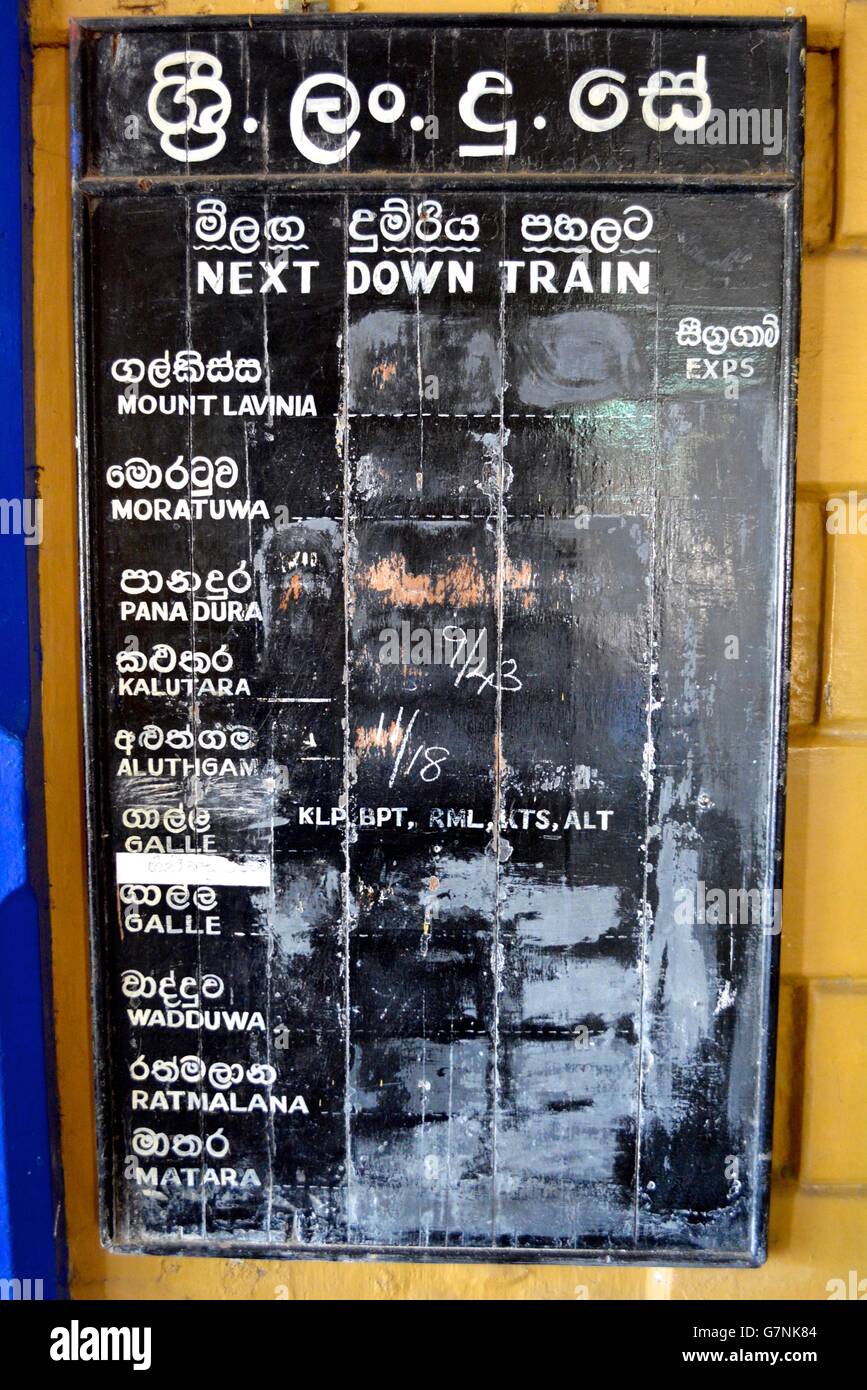 ශ්‍රී . ලං . දු . සේ
මීලඟ දුම්රිය පහලට
NEXT DOWN TRAIN
සීග්‍රගාමී
EXPS
ගල්කිස්ස
MOUNT LAVINIA
මොරටුව
MORATUWA
පානදුර
PANADURA
කළුතර
KALUTARA
9/43
අළුත්ගම
ALUTHGAM
11/18
ගාල්ල
GALLE
KLP, BPT, RML, KTS, ALT
ගාල්ල
GALLE
වාද්දුව
WADDUWA
රත්මලාන
RATMALANA
මාතර
MATARA
alamy
Image ID: G7NK84
www.alamy.com